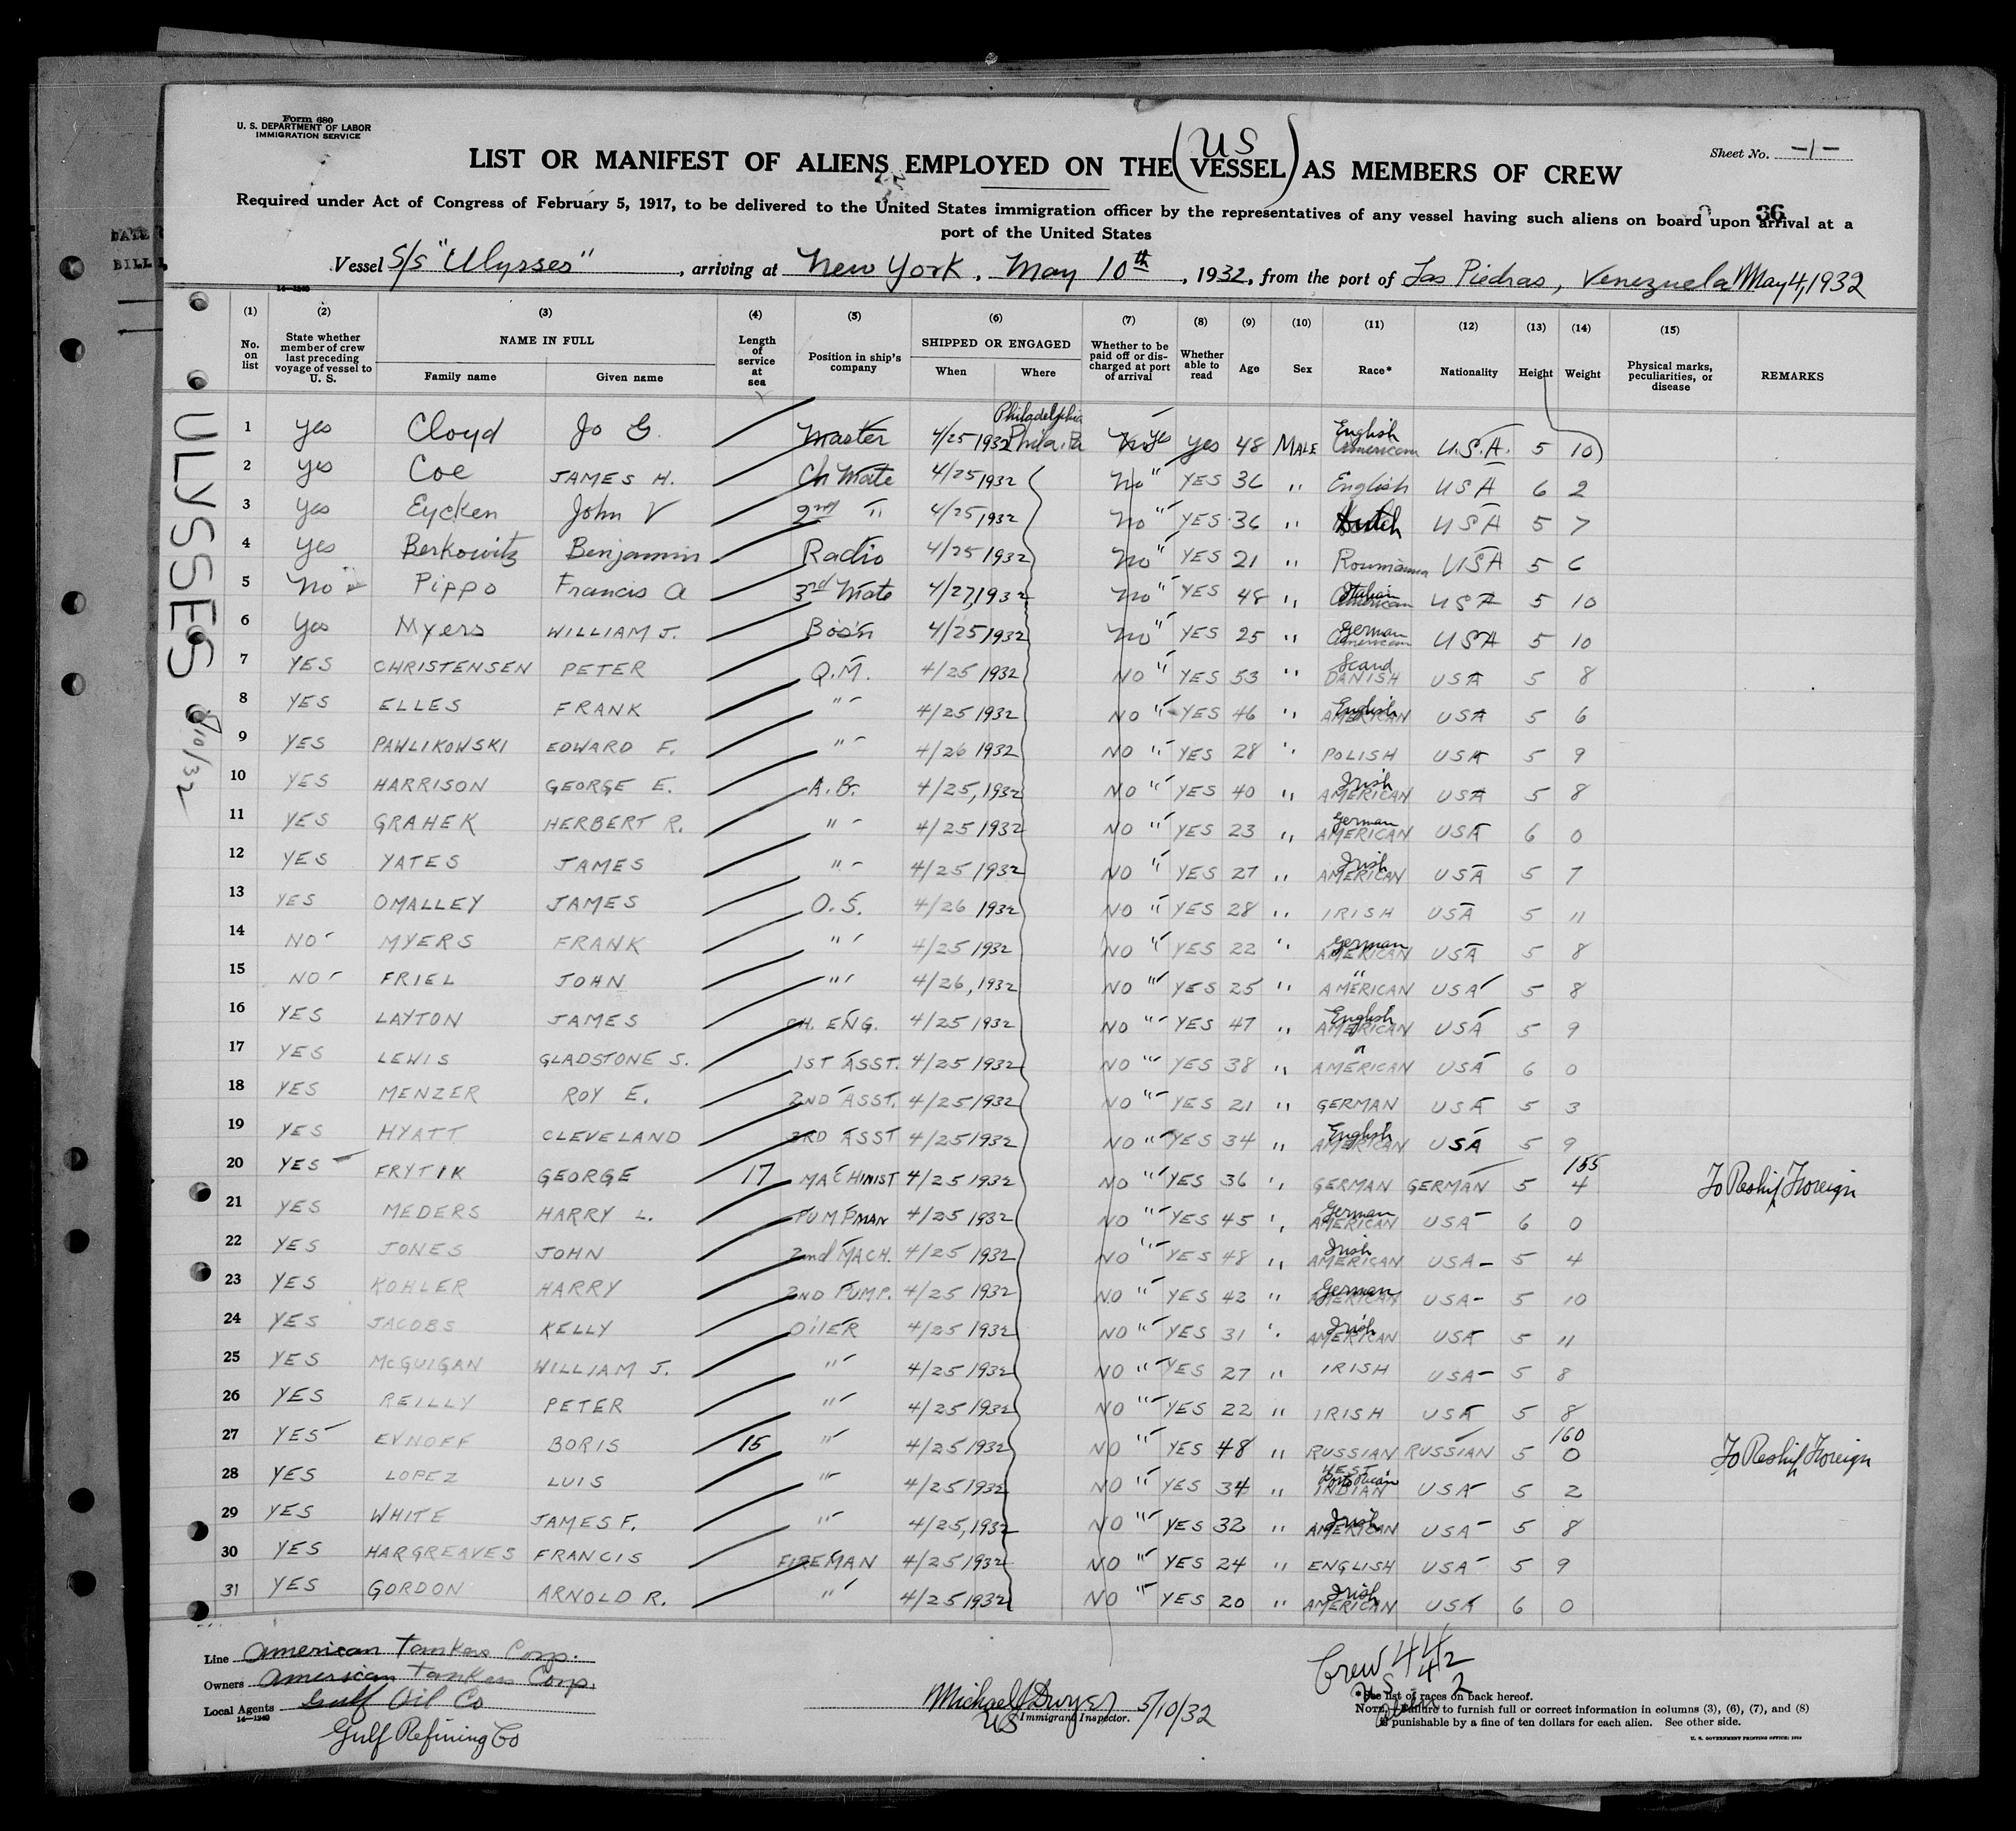 Form 680
U. S. DEPARTMENT OF LABOR
IMMIGRATION SERVICE
US
Sheet No. -1-
LIST OR MANIFEST OF ALIENS EMPLOYED ON THE (VESSEL) AS MEMBERS OF CREW
Required under Act of Congress of February 5, 1917, to be delivered to the United States immigration officer by the representatives of any vessel having such aliens on board upon arrival at a
36
port of the United States
DATE
BILL
Vessel S/S "Ulysses", arriving at New York, May 10th, 1932, from the port of Las Piedras, Venezuela May 4, 1932
14-1240
(1) (2) (3) (4) (5) (6) (7) (8) (9) (10) (11) (12) (13) (14) (15)
No. on list
State whether member of crew last preceding voyage of vessel to U. S.
NAME IN FULL
Family name Given name
Length of service at sea
Position in ship's company
SHIPPED OR ENGAGED
When Where
Whether to be paid off or discharged at port of arrival
Whether able to read
Age Sex Race* Nationality Height Weight
Physical marks, peculiarities, or disease
REMARKS
ULYSSES 5/10/32
Philadelphia
1 yes Cloyd Jo G. Master 4/25 1932 Phila. Pa No yes yes 48 MALE English American U.S.A. 5 10
2 yes Coe JAMES H. Ch Mate 4/25 1932 No " YES 36 " English USA 6 2
3 yes Eycken John V 2nd " 4/25, 1932 No " YES 36 " Dutch USA 5 7
4 yes Berkowitz Benjamin Radio 4/25 1932 No " YES 21 " Roumanian USA 5 6
5 No Pippo Francis A 3rd Mate 4/27, 1932 No " YES 48 " Italian American USA 5 10
6 Yes Myers WILLIAM J. Bos'n 4/25, 1932 No " YES 25 " German American USA 5 10
7 YES CHRISTENSEN PETER Q.M. 4/25 1932 NO " YES 53 " Scand DANISH USA 5 8
8 YES ELLES FRANK " 4/25 1932 NO " YES 46 " English AMERICAN USA 5 6
9 YES PAWLIKOWSKI EDWARD F. " 4/26 1932 NO " YES 28 " POLISH USA 5 9
10 YES HARRISON GEORGE E. A.B. 4/25, 1932 NO " YES 40 " Irish AMERICAN USA 5 8
11 YES GRAHEK HERBERT R. " 4/25 1932 NO " YES 23 " German AMERICAN USA 6 0
12 YES YATES JAMES " 4/25 1932 NO " YES 27 " Irish AMERICAN USA 5 7
13 YES OMALLEY JAMES O.S. 4/26 1932 NO " YES 28 " IRISH USA 5 11
14 NO MYERS FRANK " 4/25 1932 NO " YES 22 " German AMERICAN USA 5 8
15 NO FRIEL JOHN " 4/26, 1932 NO " YES 25 " " AMERICAN USA 5 8
16 YES LAYTON JAMES CH. ENG. 4/25 1932 NO " YES 47 " English AMERICAN USA 5 9
17 YES LEWIS GLADSTONE S. 1ST ASST. 4/25 1932 NO " YES 38 " " AMERICAN USA 6 0
18 YES MENZER ROY E. 2ND ASST. 4/25 1932 NO " YES 21 " GERMAN USA 5 3
19 YES HYATT CLEVELAND 3RD ASST 4/25 1932 NO " YES 34 " English AMERICAN USA 5 9
20 YES FRYTIK GEORGE 17 MACHINIST 4/25 1932 NO " YES 36 " GERMAN GERMAN 5 4 155 To Reship Foreign
21 YES MEDERS HARRY L. PUMPMAN 4/25 1932 NO " YES 45 " German AMERICAN USA 6 0
22 YES JONES JOHN 2nd MACH. 4/25 1932 NO " YES 48 " Irish AMERICAN USA 5 4
23 YES KOHLER HARRY 2ND PUMP. 4/25 1932 NO " YES 42 " German AMERICAN USA 5 10
24 YES JACOBS KELLY OILER 4/25 1932 NO " YES 31 " Irish AMERICAN USA 5 11
25 YES McGUIGAN WILLIAM J. " 4/25 1932 NO " YES 27 " IRISH USA 5 8
26 YES REILLY PETER " 4/25 1932 NO " YES 22 " IRISH USA 5 8
27 YES EVNOFF BORIS 15 " 4/25 1932 NO " YES 48 " RUSSIAN RUSSIAN 5 0 160 To Reship Foreign
28 YES LOPEZ LUIS " 4/25 1932 NO " YES 34 " WEST INDIAN USA 5 2
29 YES WHITE JAMES F. " 4/25, 1932 NO " YES 32 " Irish AMERICAN USA 5 8
30 YES HARGREAVES FRANCIS FIREMAN 4/25 1932 NO " YES 24 " ENGLISH USA 5 9
31 YES GORDON ARNOLD R. " 4/25 1932 NO " YES 20 " Irish AMERICAN USA 6 0
Line American Tankers Corp.
Owners American Tankers Corp.
Local Agents Gulf Oil Co
14-1240
Gulf Refining Co
Michael J Dwyer 5/10/32
US Immigrant Inspector.
Crew 44
US 42
2
*See list of races on back hereof.
NOTE.—Failure to furnish full or correct information in columns (3), (6), (7), and (8)
is punishable by a fine of ten dollars for each alien. See other side.
U. S. GOVERNMENT PRINTING OFFICE